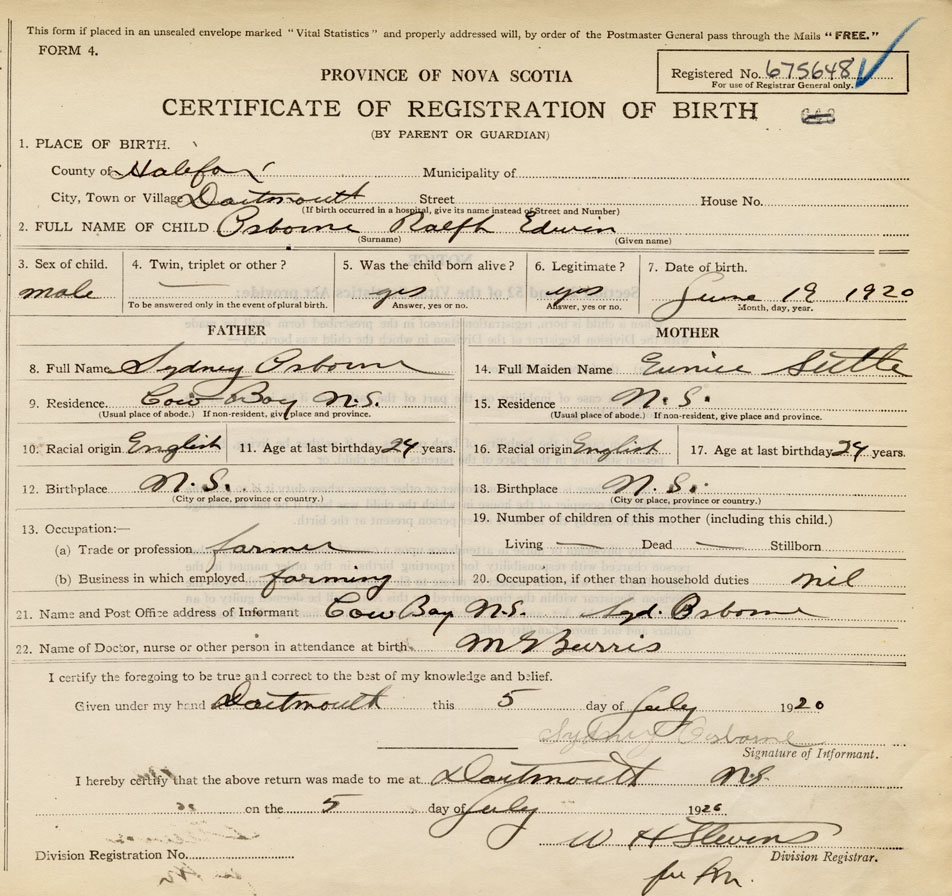 This form if placed in an unsealed envelope marked "Vital Statistics" and properly addressed will, by order of the Postmaster General pass through the Mails "FREE."
FORM 4.
Registered No. 675648
For use of Registrar General only.
PROVINCE OF NOVA SCOTIA
CERTIFICATE OF REGISTRATION OF BIRTH
(BY PARENT OR GUARDIAN)
1. PLACE OF BIRTH.
County of Halifax Municipality of
City, Town or Village Dartmouth Street House No.
(If birth occurred in a hospital, give its name instead of Street and Number)
2. FULL NAME OF CHILD Osborne Ralph Edwin
(Surname) (Given name)
3. Sex of child. 4. Twin, triplet or other? 5. Was the child born alive? 6. Legitimate? 7. Date of birth.
male — yes yes June 19 1920
To be answered only in the event of plural birth. Answer, yes or no. Answer, yes or no. Month, day, year.
FATHER MOTHER
8. Full Name Sydney Osborne 14. Full Maiden Name Eunice
9. Residence. Cow Bay N.S. 15. Residence N.S.
(Usual place of abode.) If non-resident, give place and province. (Usual place of abode.) If non-resident, give place and province.
10. Racial origin English 11. Age at last birthday 24 years. 16. Racial origin English 17. Age at last birthday 24 years.
12. Birthplace N.S. 18. Birthplace N.S.
(City or place, province or country.) (City or place, province or country.)
13. Occupation:— 19. Number of children of this mother (including this child.)
(a) Trade or profession farmer Living — Dead — Stillborn
(b) Business in which employed farming 20. Occupation, if other than household duties nil
21. Name and Post Office address of Informant Cow Bay N.S. Syd. Osborne
22. Name of Doctor, nurse or other person in attendance at birth. M G Burris
I certify the foregoing to be true and correct to the best of my knowledge and belief.
Given under my hand Dartmouth this 5 day of July 1920
Sydney Osborne
Signature of Informant.
I hereby certify that the above return was made to me at Dartmouth N.S.
on the 5 day of July 1926
W H Stevens
Division Registration No. Division Registrar.